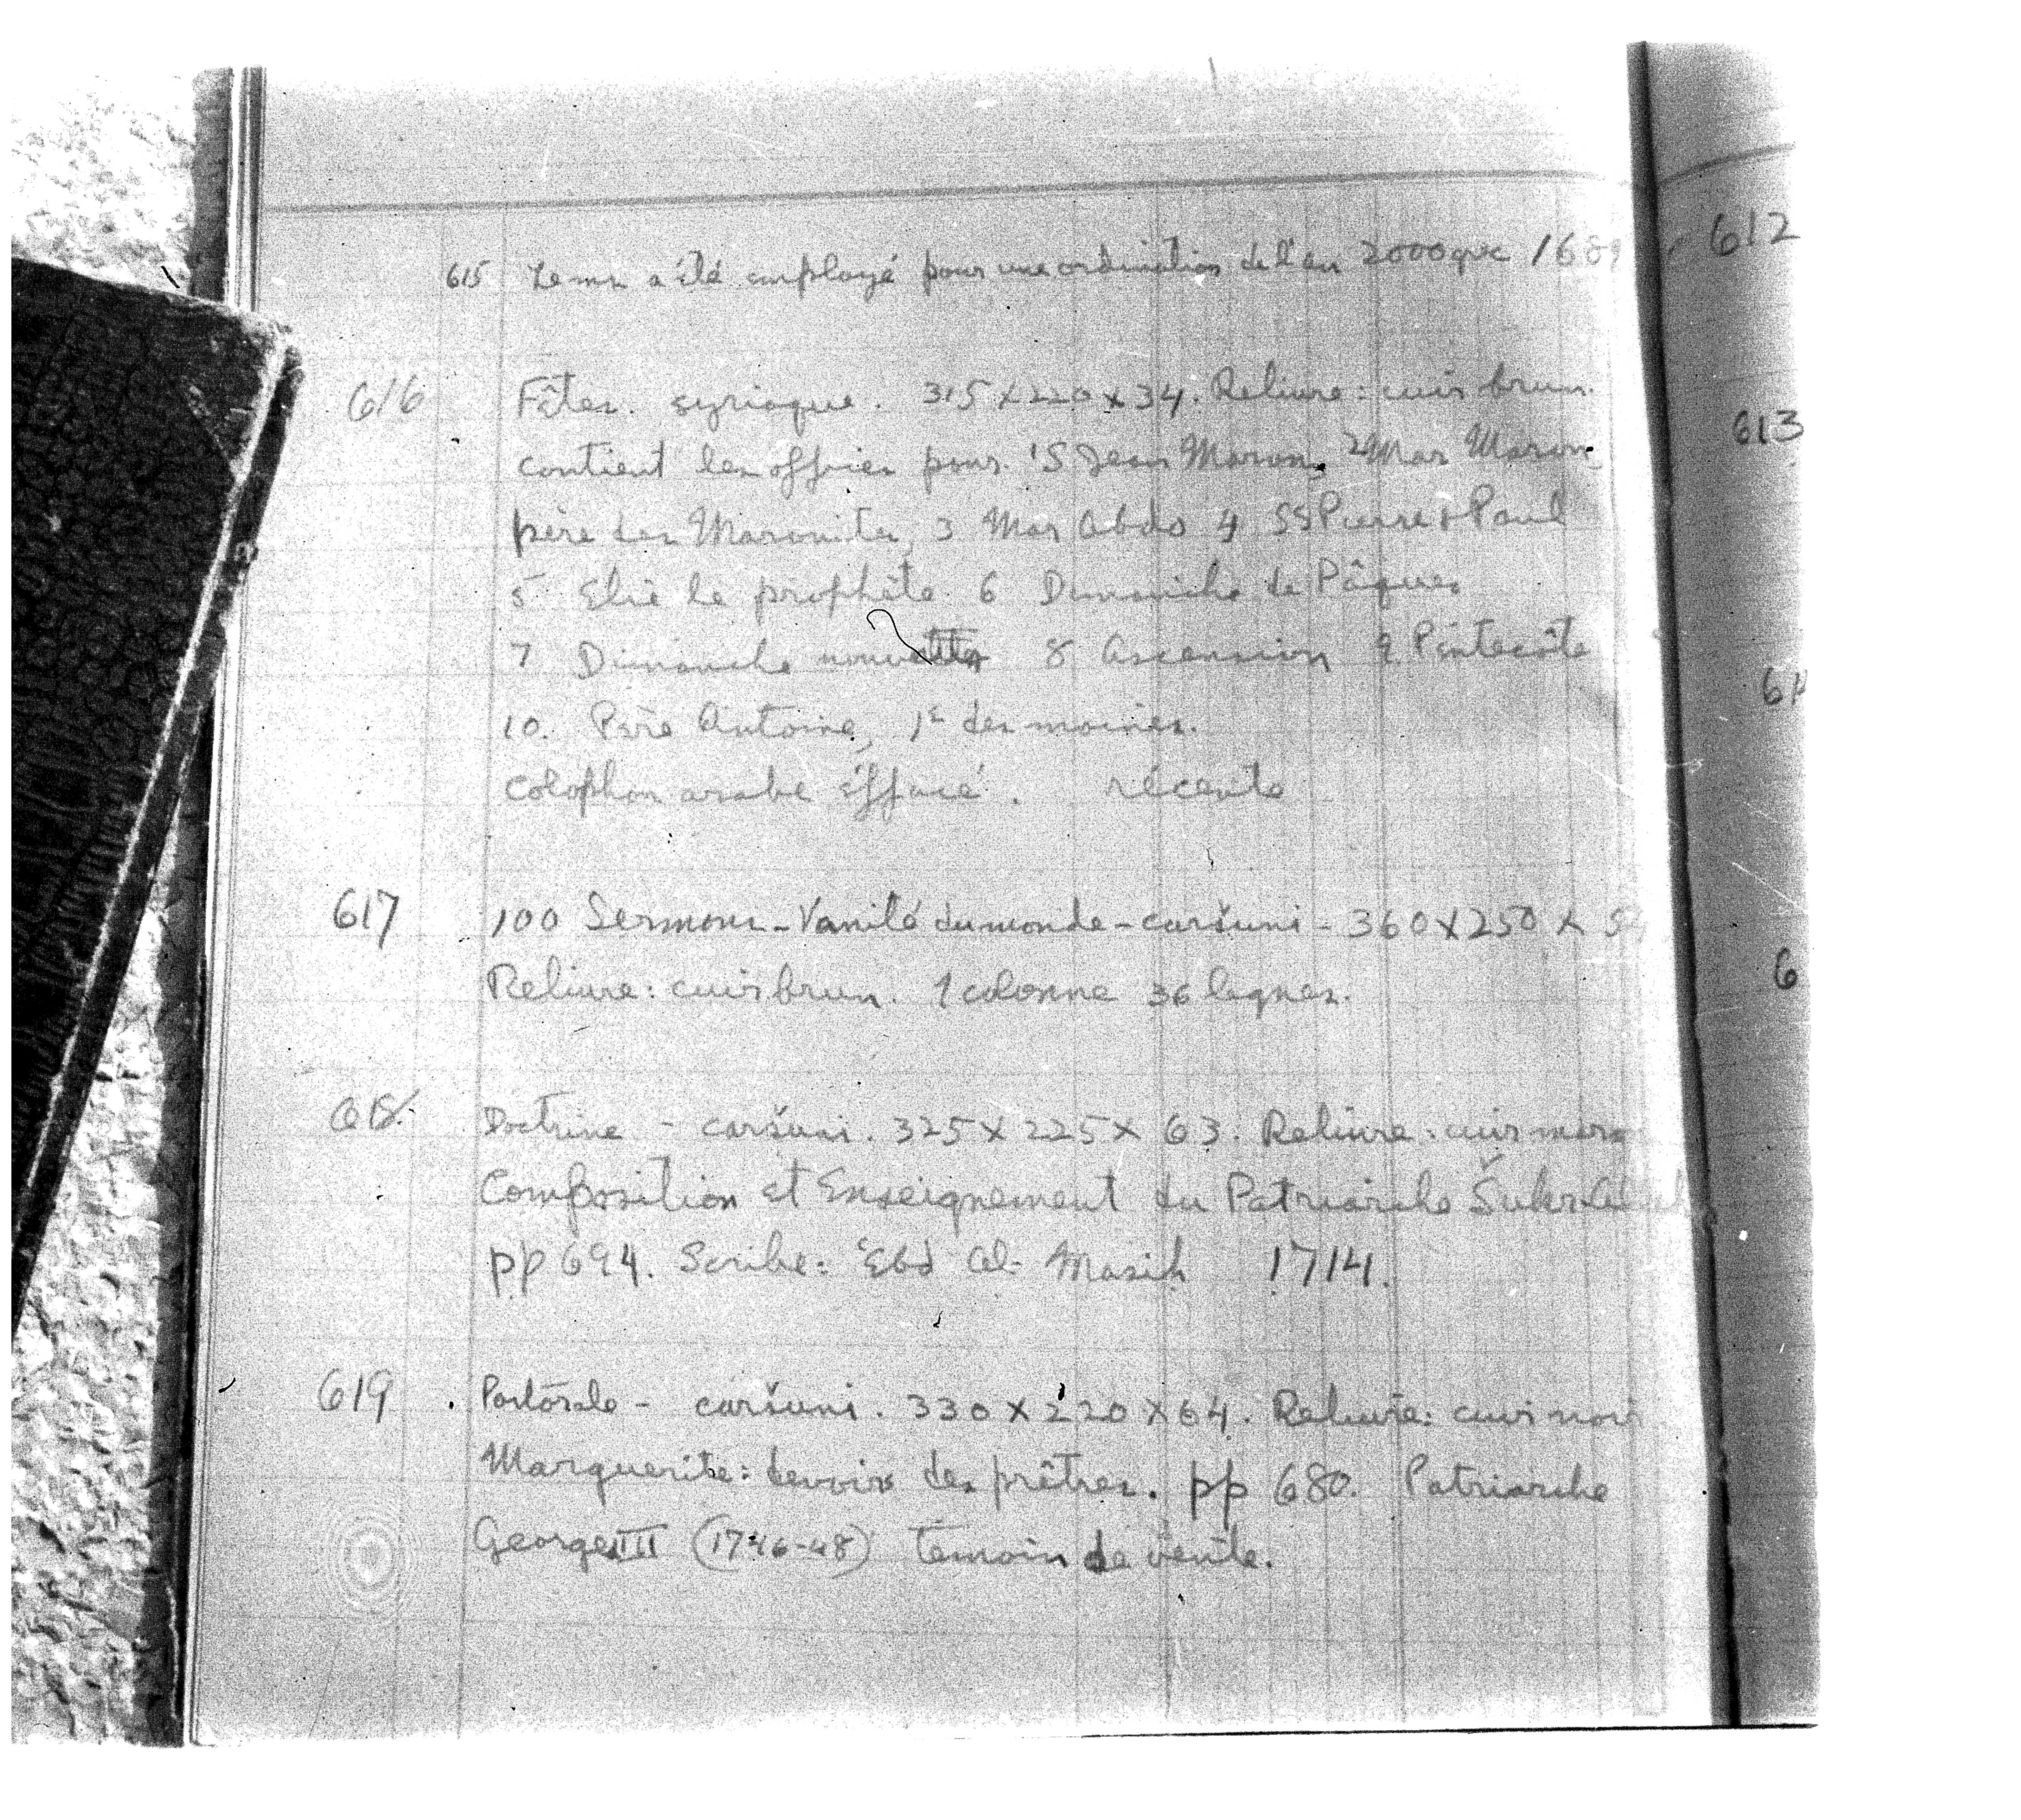 615 Le ms a été employé pour une ordination de l'an 2000 grec 1689
616 Fêtes. syriaque. 315 x 220 x 34. Reliure: cuir brun.
contient les offices pour 1 S Jean Maron, 2 Mar Maron
père des Maronites, 3 Mar Abdo 4 SS Pierre & Paul
5 Elie le prophète 6 Dimanche de Pâques
7 Dimanche 8 Ascension 9 Pentecôte
10. Père Antoine, 1r des moines.
colophon arabe éffacé. récente
617 100 Sermons - Vanité du monde - caršuni - 360 x 250 x
Reliure: cuir brun. 1 colonne 36 lignes.
618 Doctrine - caršuni. 325 x 225 x 63. Reliure: cuir
Composition et Enseignement du Patriarche
pp 694. Scribe: 'Ebd al- Masih 1714.
619 Pastorale - caršuni. 330 x 220 x 64. Reliure: cuir noir
Marguerite: devoir des prêtres. pp 680. Patriarche
George III (1746-48) temoin de vente.
612
613